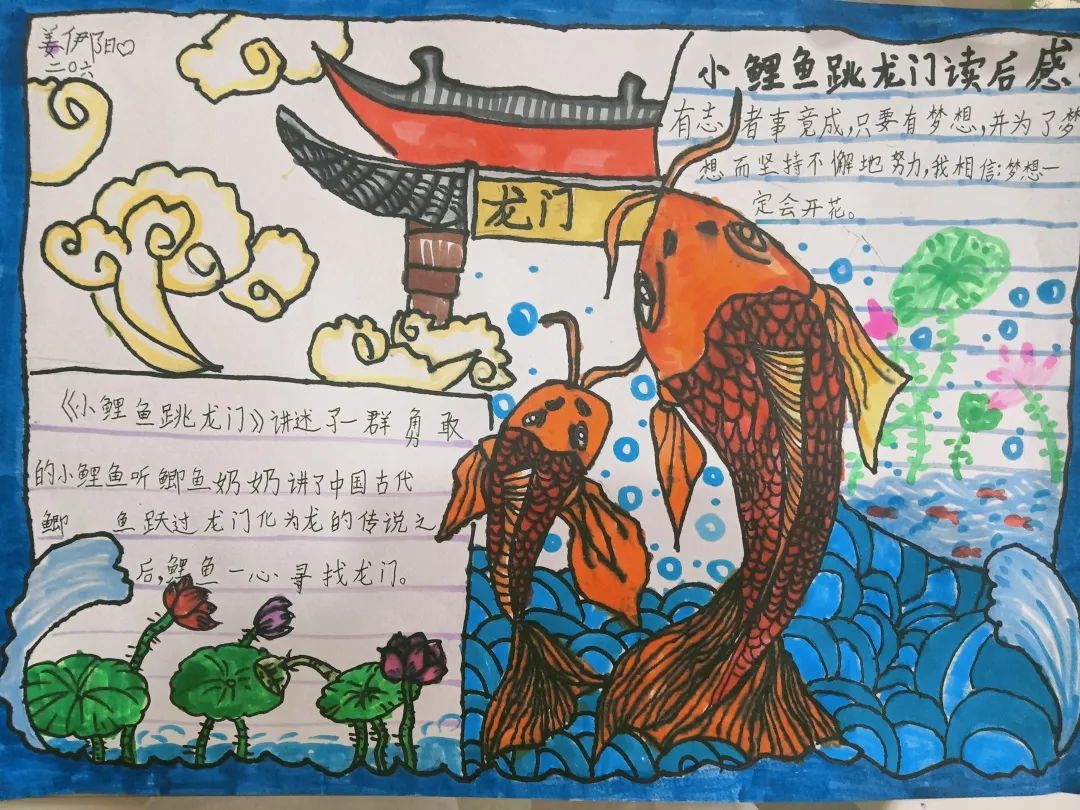 姜伊阳
二〇六
小鲤鱼跳龙门读后感
有志者事竟成,只要有梦想,并为了梦
想而坚持不懈地努力,我相信:梦想一
定会开花。
龙门
《小鲤鱼跳龙门》讲述了一群勇敢
的小鲤鱼听鲫鱼奶奶讲了中国古代
鲫鱼跃过龙门化为龙的传说之
后,鲤鱼一心寻找龙门。